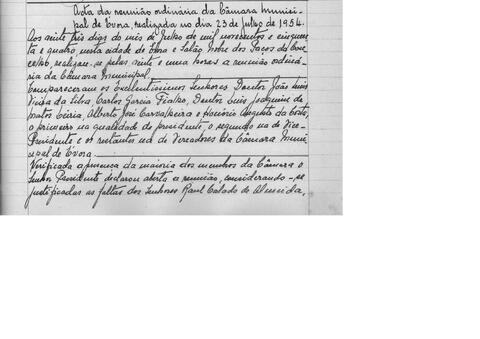 Acta da reunião ordinária da Câmara Munici-
pal de Évora, realizada no dia 23 de Julho de 1954.
Aos vinte três dias do mês de Julho de mil novecentos e cinquen
ta e quatro, nesta cidade de Évora e Salão Nobre dos Paços do Conce
lho, realizou-se pelas vinte e uma horas a reunião ordiná-
ria da Câmara Municipal.
Compareceram os Excelentíssimos Senhores Doutor João Luis
Vieira da Silva, Carlos Garcia Fialho, Doutor Luis Joaquim de
Matos, Alberto José Carvalheira e Honório Augusto da Costa,
o primeiro na qualidade de presidente, o segundo na de Vice-
Presidente e os restantes na de Vereadores da Câmara Muni
cipal de Évora.
Verificada a presença da maioria dos membros da Câmara o
Senhor Presidente declarou aberta a reunião, considerando-se
justificadas as faltas dos Senhores Raul Calado de Almeida,